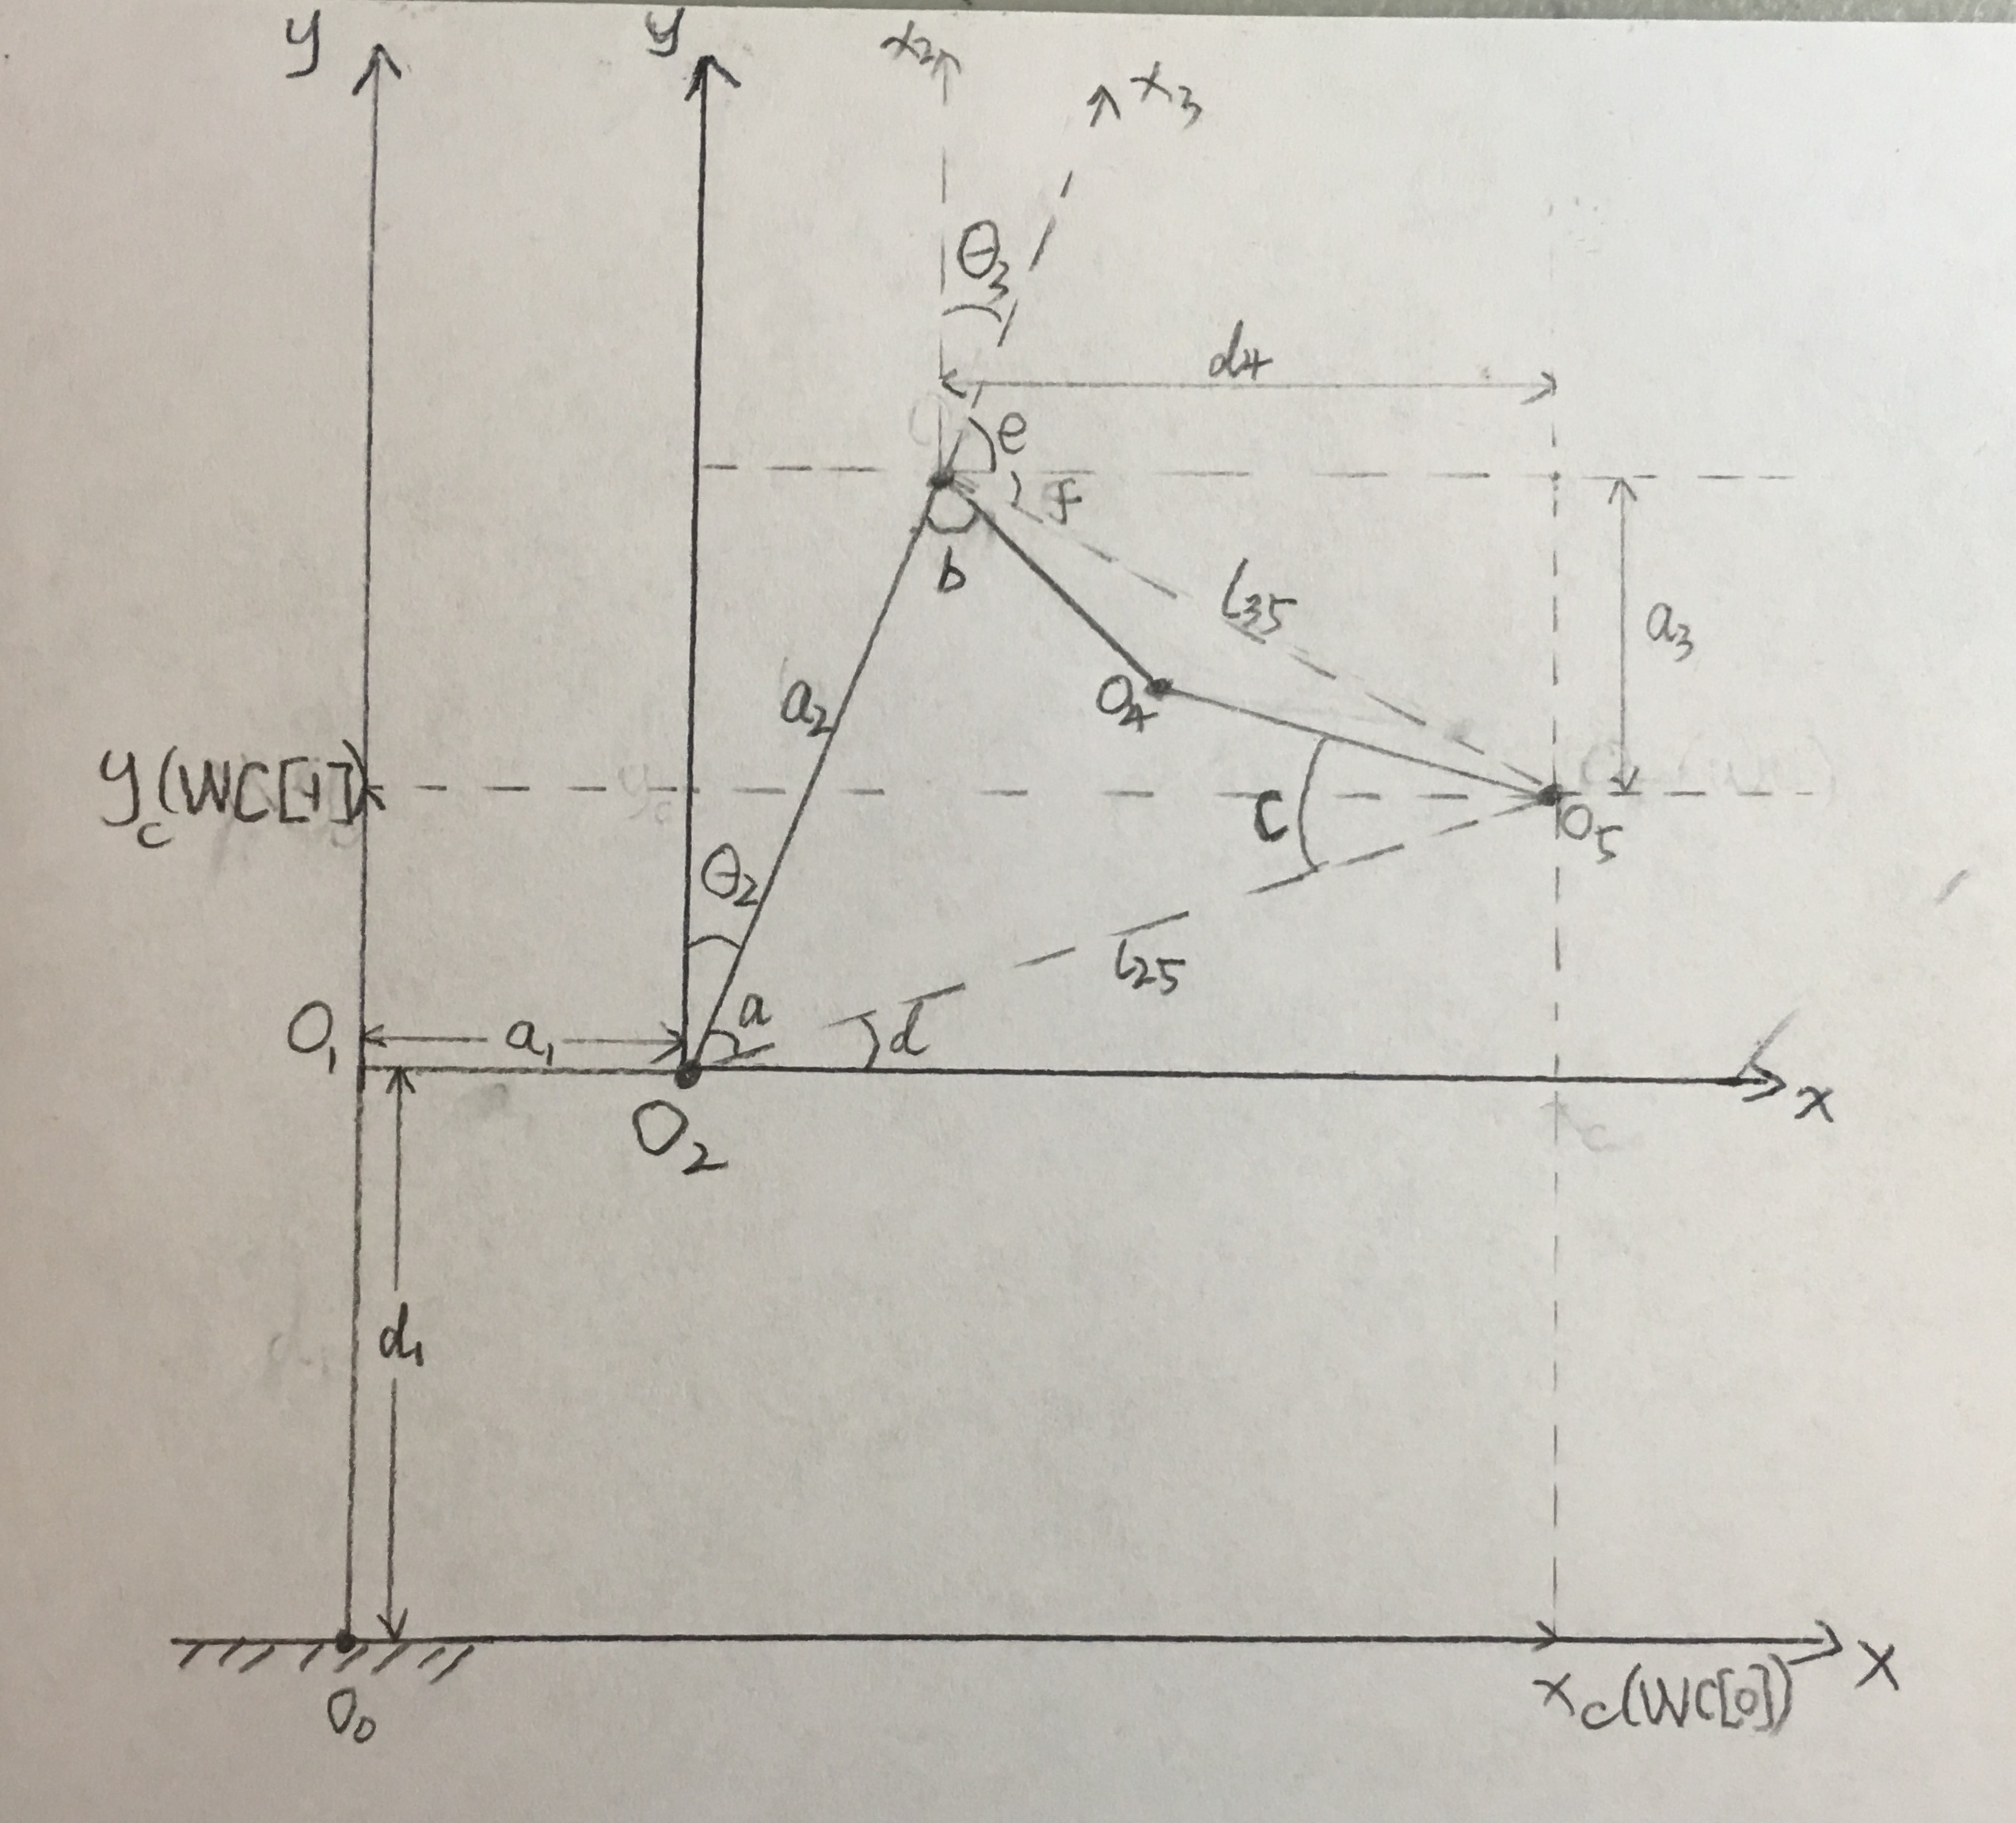 y
y
x₂
x₃
θ₃
d₄
e
f
b
l₃₅
a₃
a₂
O₄
y_c(WC[1])
y_c
C
O₅
θ₂
l₂₅
a
d
O₁
a₁
x
O₂
d₁
O₀
x_c(WC[0])
X